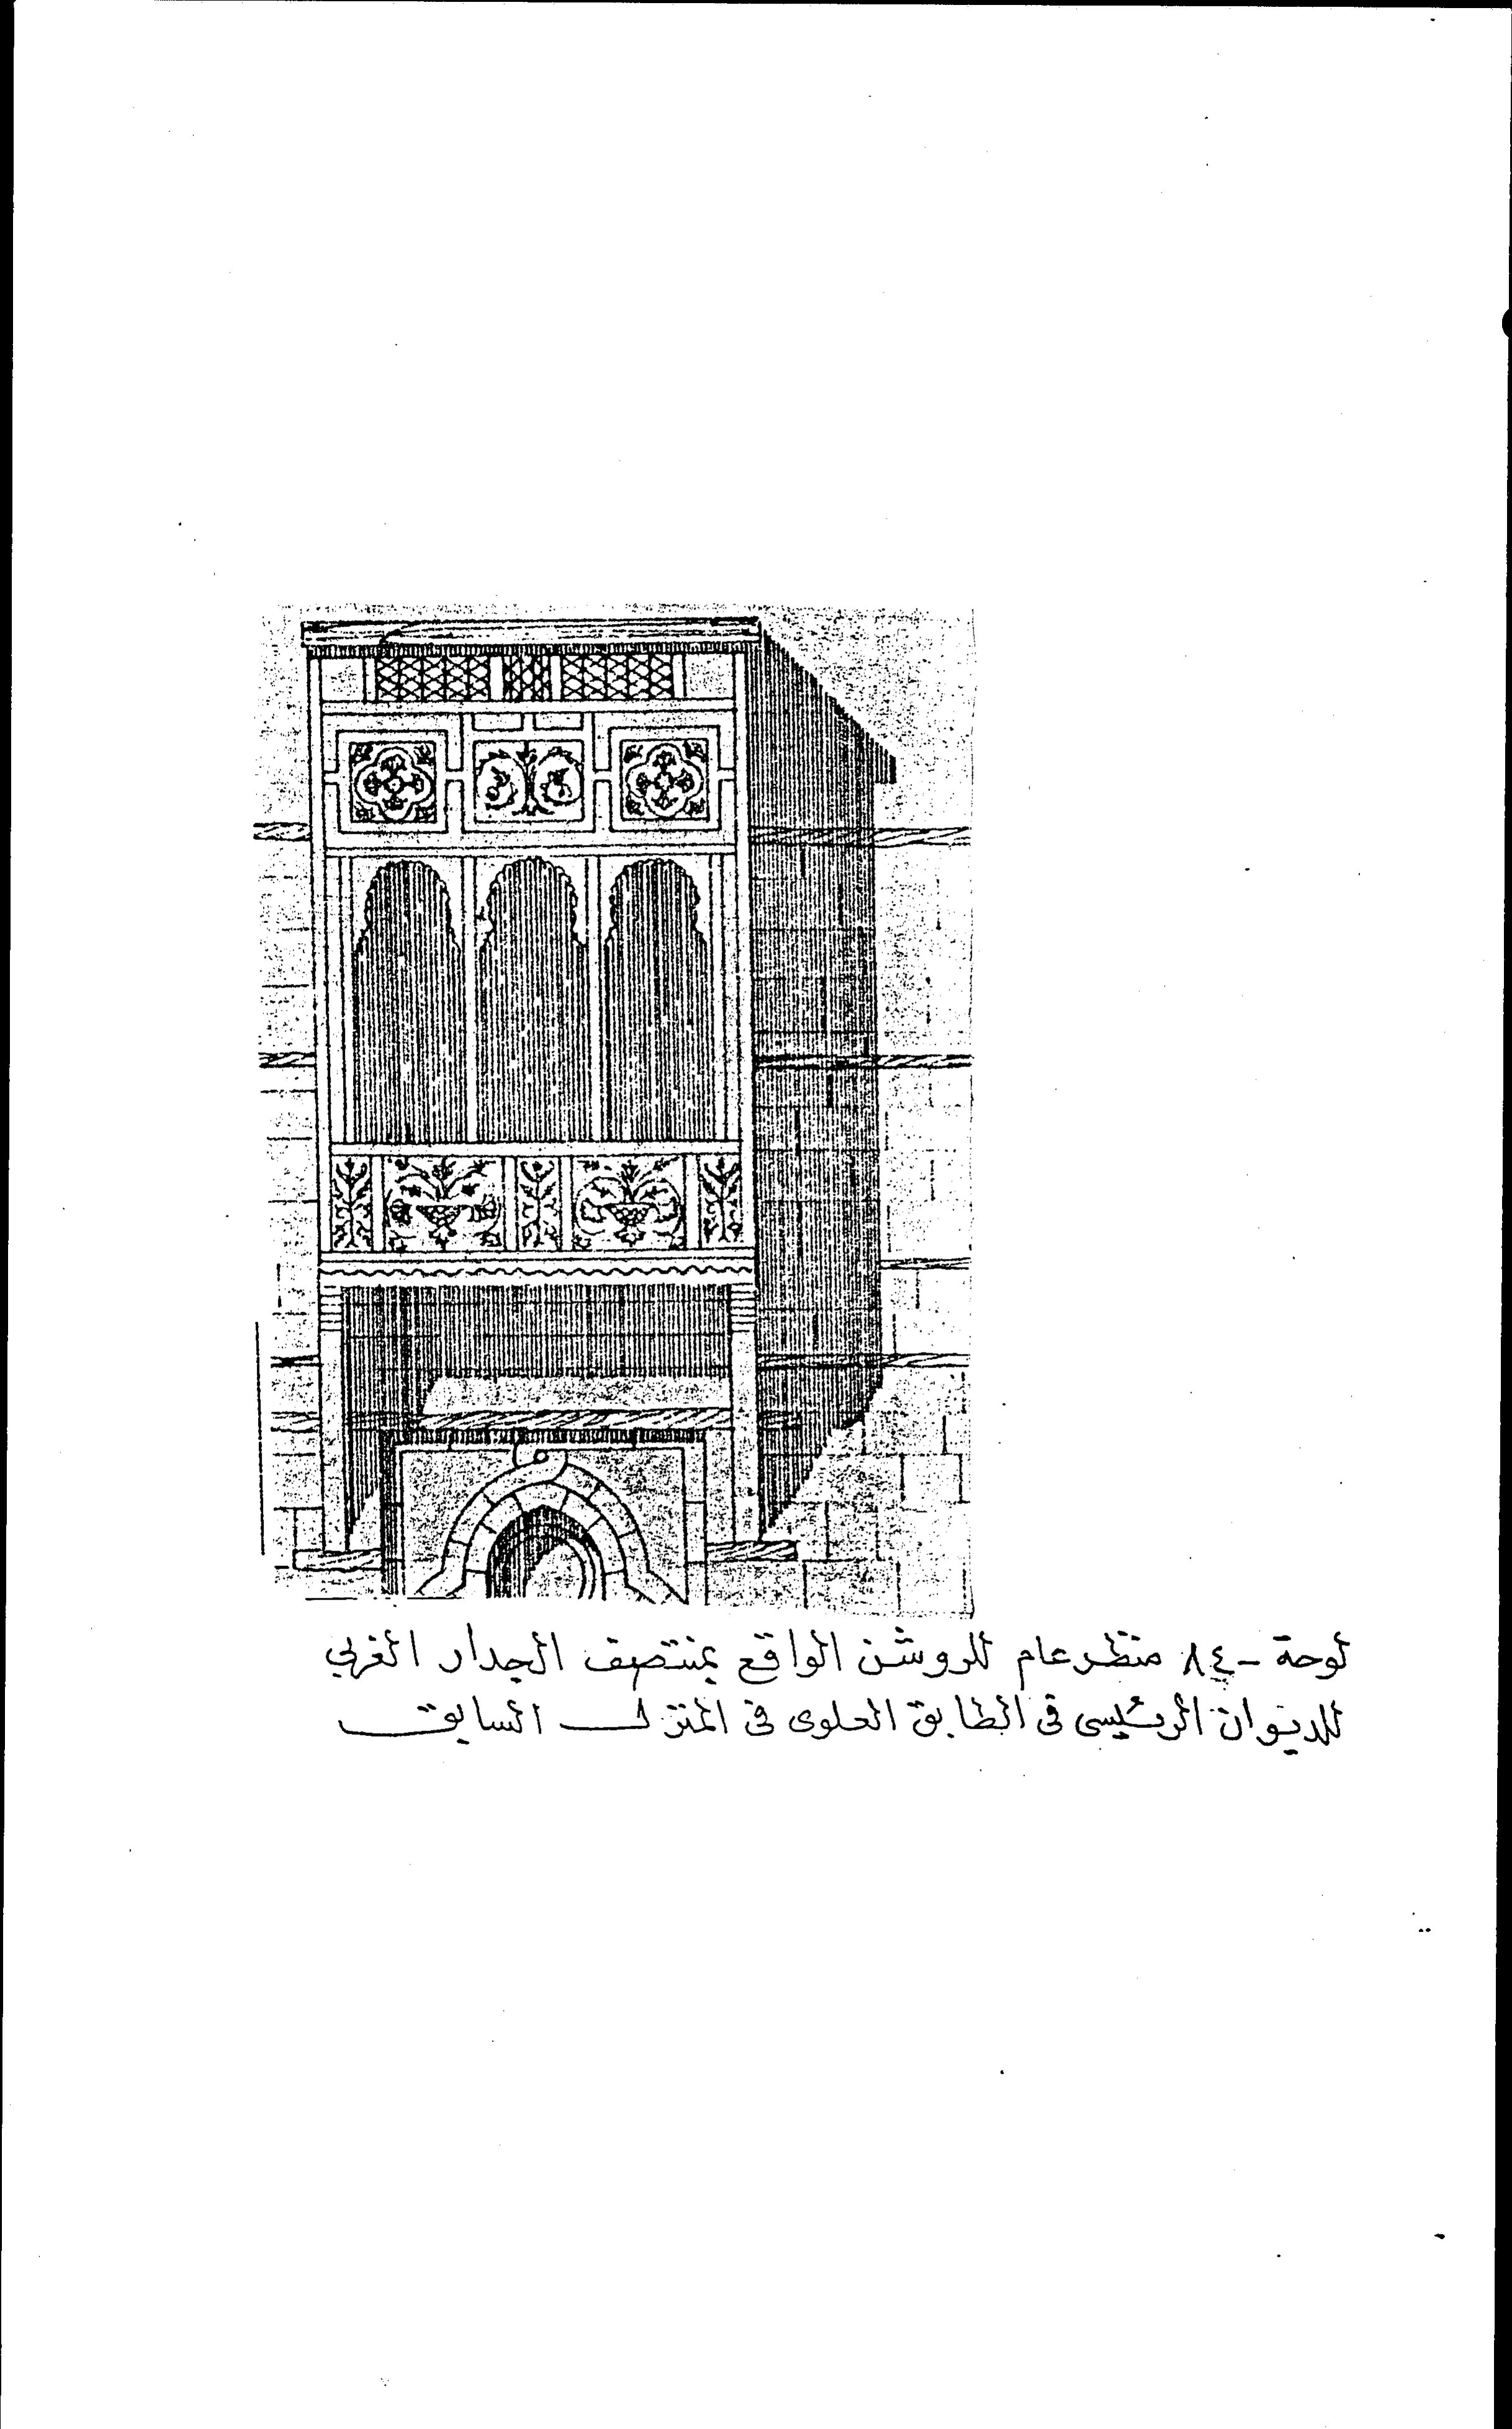 لوحة - ٨٤ منظر عام للروشن الواقع بمنتصف الجدار الغربي
للديوان الرئيسى فى الطابق العلوى فى المنزل السابق